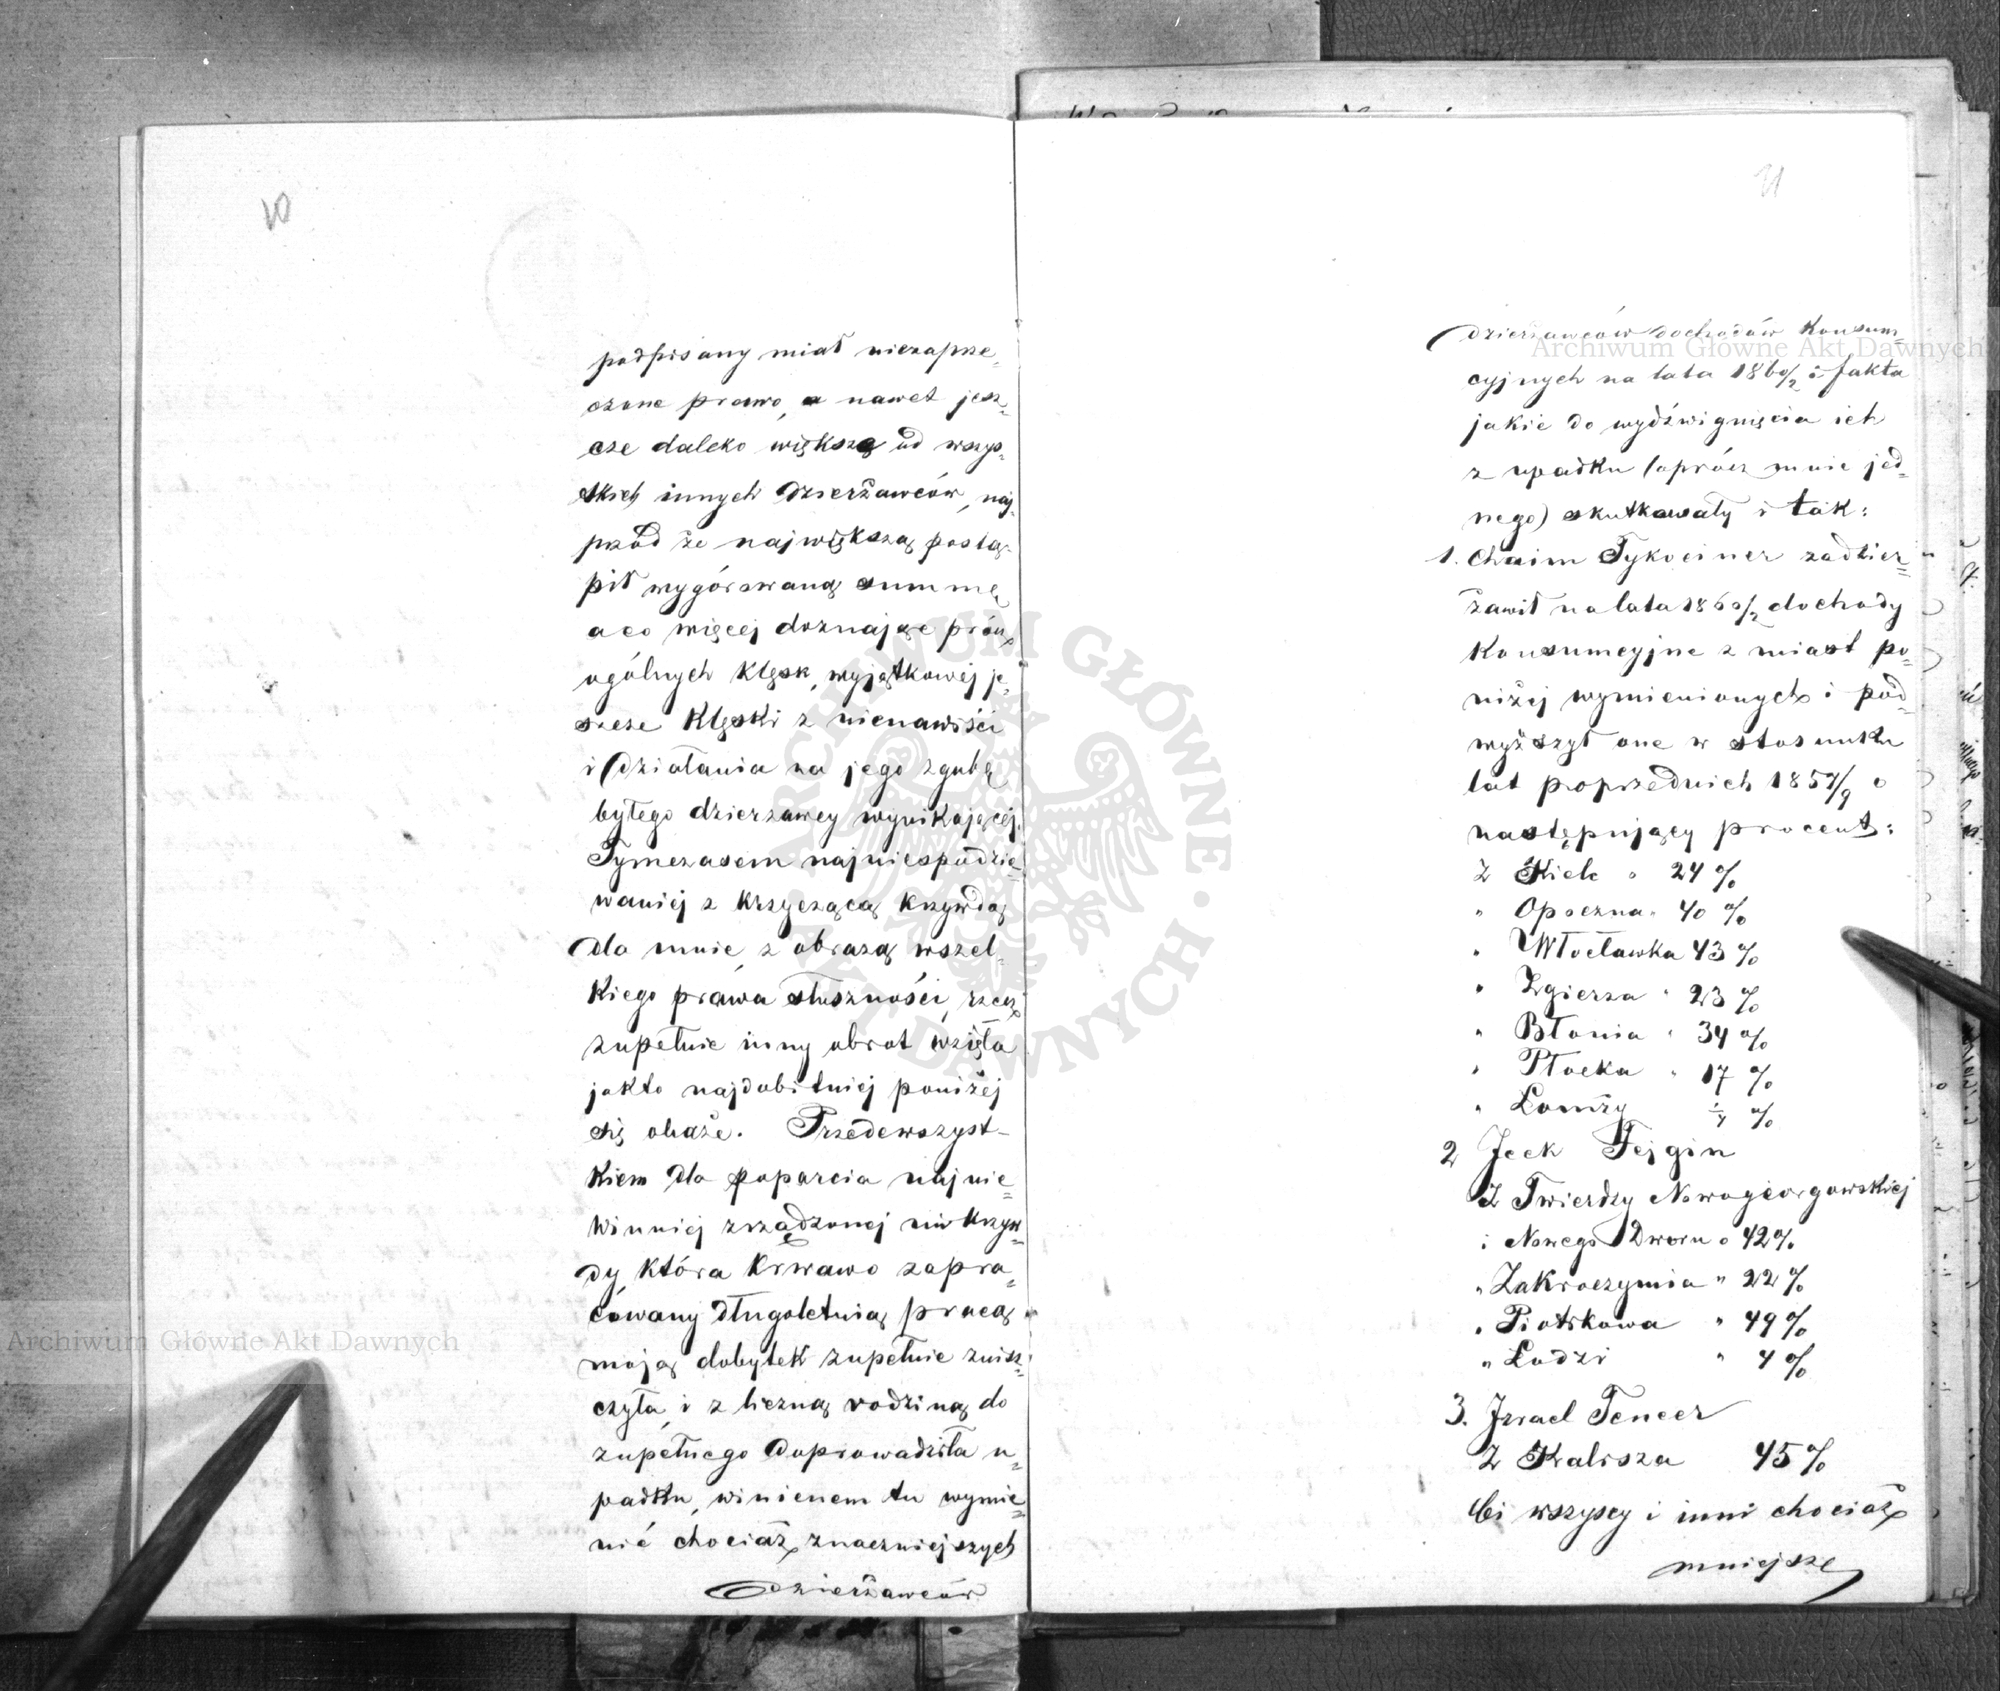 10
podpisany miał niezaprze=
czone prawo, a nawet jesz=
cze daleko większą od wszys=
tkich innych Dzierżawców, naj=
przód że największą postą=
pił wygórowaną summę,
a co więcej doznając prócz
ogólnych klęsk, wyjątkowej je=
szcze klęski z nienawiści
i działania na jego zgubę
byłego dzierżawcy wynikającej.
Tymczasem najniespodzie=
waniej z krzyczącą krzywdą
dla mnie, z obrazą wszel=
kiego prawa słuszności, rzecz
zupełnie inny obrot wzięła
jak to najdobitniej poniżej
się okaże. Przedewszyst=
kiem dla poparcia najnie=
winniej zrządzonej mi krzyw=
dy, która krwawo zapra=
cowany długoletnią pracą
moją dobytek zupełnie znisz=
czyła, i z liczną rodziną do
zupełnego doprowadziła u=
padku, winienem tu wymie=
nić chociaż znaczniejszych
Dzierżawców
11
Dzierżawców dochodów Konsum=
cyjnych na lata 1860/2 i fakta
jakie do wydźwignięcia ich
z upadku (oprócz mnie jed=
nego) skutkowały i tak:
1. Chaim Tykociner zadzier=
żawił na lata 1860/2 dochody
Konsumcyjne z miast po=
niżej wymienionych i pod=
wyższył one w stosunku
lat poprzednich 1857/9 o
następujący procent:
Z Kielc o 24 %
" Opoczna " 40 %
" Włocławka 43 %
" Zgierza " 23 %
" Błonia " 34 %
" Płocka " 17 %
" Łomży %
2 Icek Fejgin
Z Twierdzy Nowogeorgowskiej
i Nowego Dworu o 42 %
" Zakroczymia " 22 %
" Piotrkowa " 49 %
" Łodzi " 4 %
3. Izrael Fencer
Z Kalisza 45 %
Ci wszyscy i inni chociaż
mniejsze
Archiwum Główne Akt Dawnych
Archiwum Główne Akt Dawnych
ARCHIWUM GŁÓWNE AKT DAWNYCH